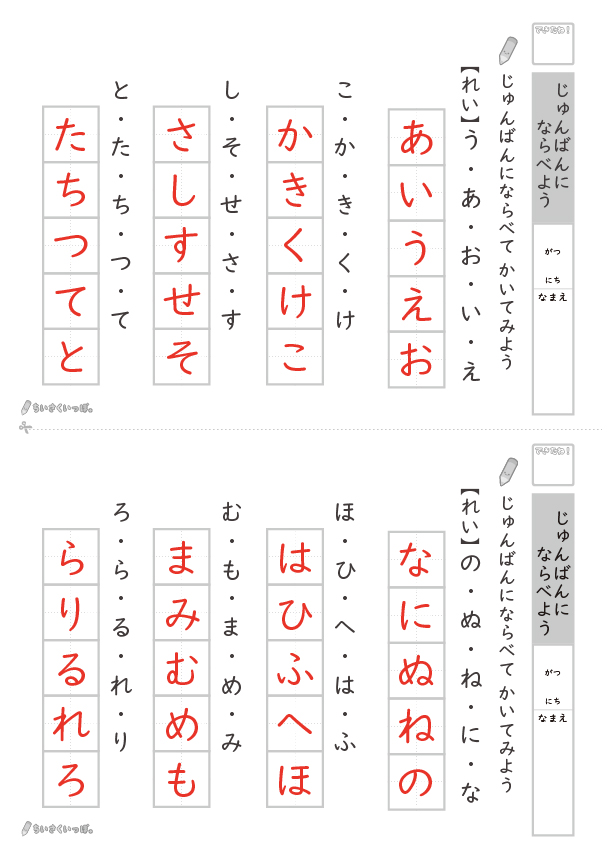 できたね！
じゅんばんに
ならべよう
がつ
にち
なまえ
じゅんばんにならべて かいてみよう
【れい】う・あ・お・い・え
あいうえお
こ・か・き・く・け
かきくけこ
し・そ・せ・さ・す
さしすせそ
と・た・ち・つ・て
たちつてと
ちいさくいっぽ。
できたね！
じゅんばんに
ならべよう
がつ
にち
なまえ
じゅんばんにならべて かいてみよう
【れい】の・ぬ・ね・に・な
なにぬねの
ほ・ひ・へ・は・ふ
はひふへほ
む・も・ま・め・み
まみむめも
ろ・ら・る・れ・り
らりるれろ
ちいさくいっぽ。